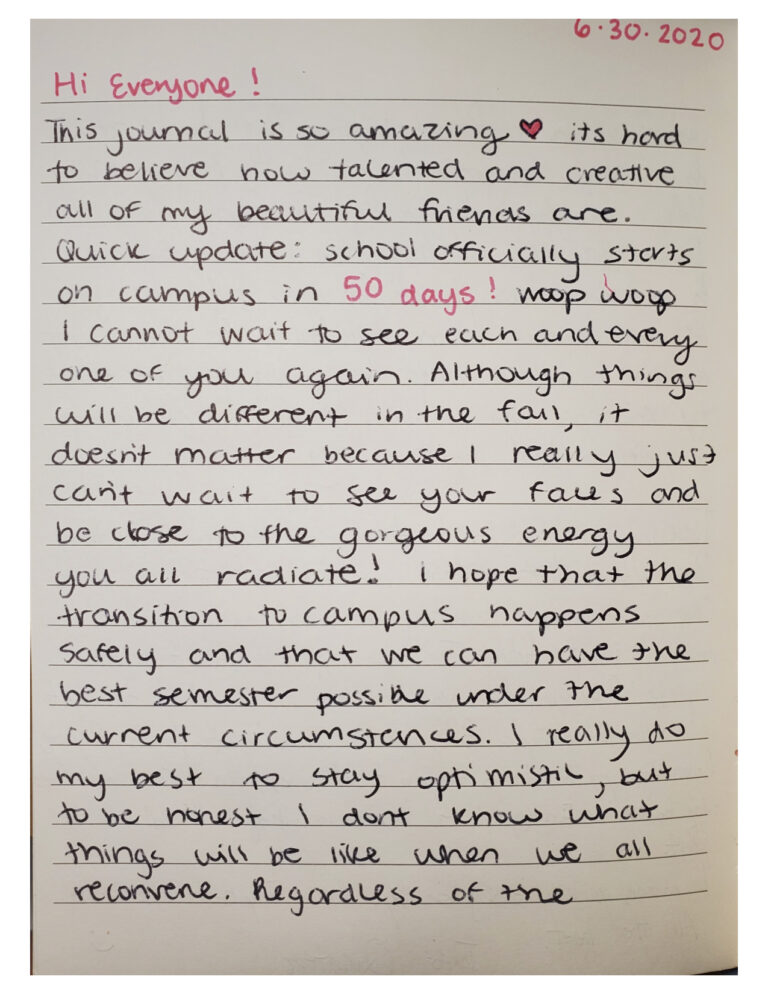 6.30.2020
Hi Everyone!
This journal is so amazing ♥ its hard
to believe how talented and creative
all of my beautiful friends are.
Quick update: school officially starts
on campus in 50 days! woop woop
I cannot wait to see each and every
one of you again. Although things
will be different in the fall, it
doesn't matter because I really just
can't wait to see your faces and
be close to the gorgeous energy
you all radiate! I hope that the
transition to campus happens
safely and that we can have the
best semester possible under the
current circumstances. I really do
my best to stay optimistic, but
to be honest I dont know what
things will be like when we all
reconvene. Regardless of the